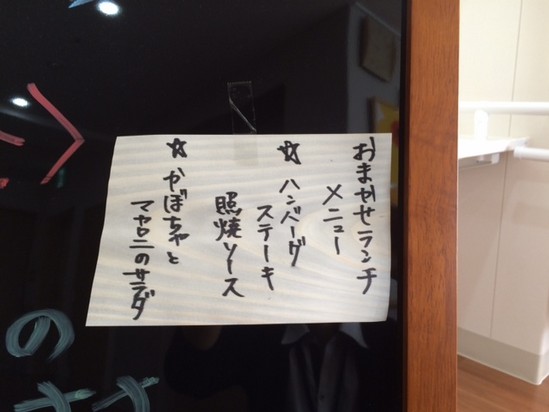 おまかせランチ
メニュー
☆ ハンバーグ
ステーキ
照焼ソース
☆ かぼちゃと
マカロニのサラダ
の